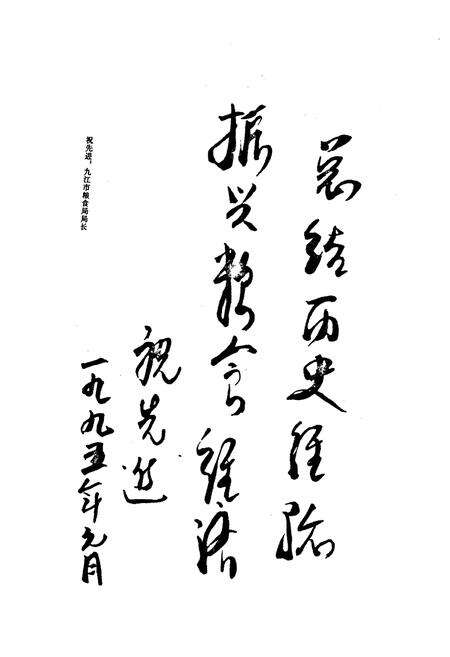 总结历史经验
振兴粮食经济
祝先进
一九九五年元月
祝先进,九江市粮食局局长